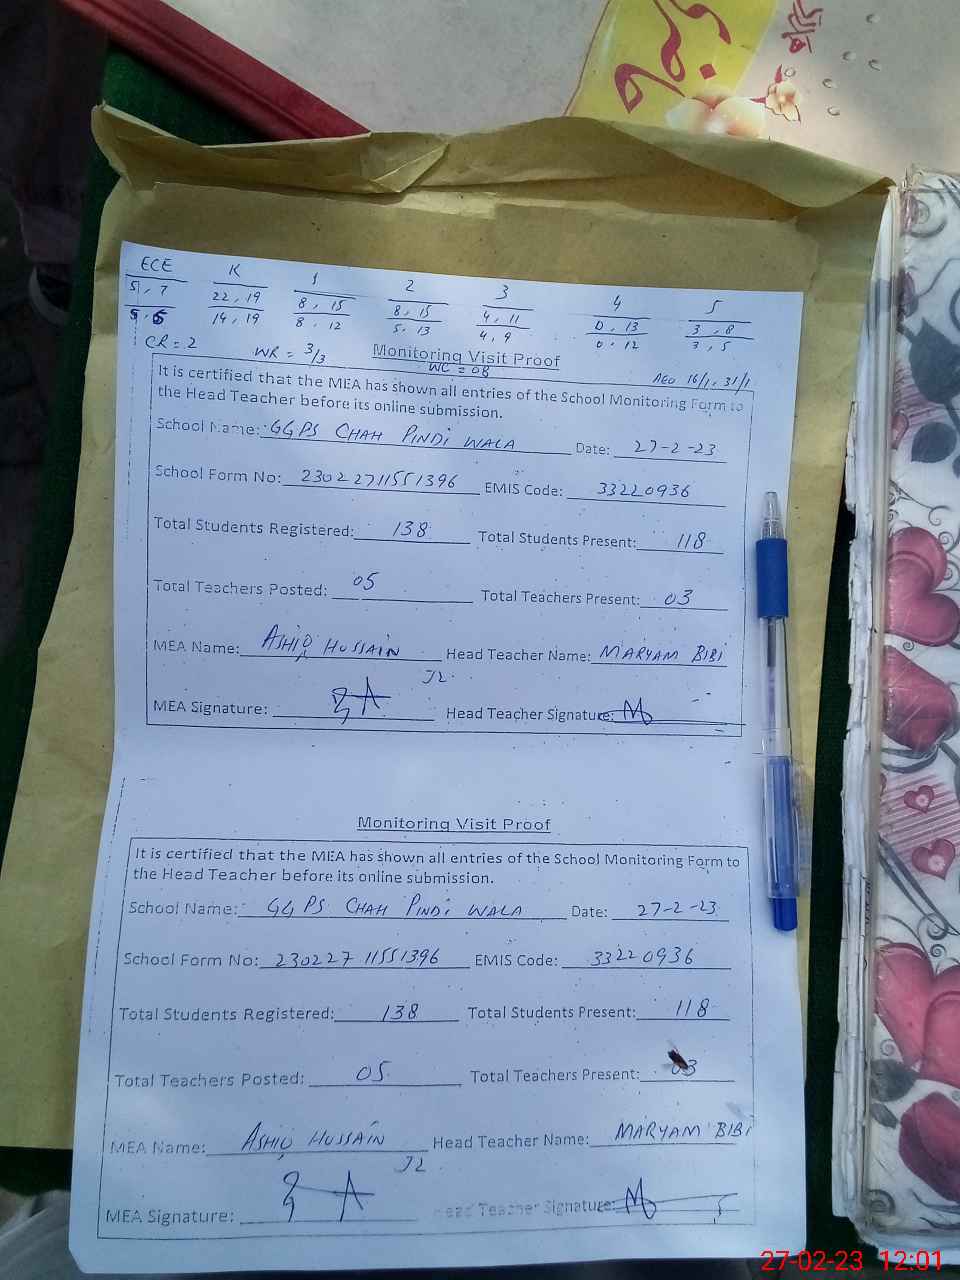 ECE K 1 2 3 4 5
5, 7 22, 19 8, 15 8, 15 4, 11 0, 13 3, 8
5, 6 14, 19 8, 12 5, 13 4, 9 0, 12 3, 5
CR = 2 WR = 3/3 Monitoring Visit Proof
WC = 08 AEO 16/1, 31/1
It is certified that the MEA has shown all entries of the School Monitoring Form to
the Head Teacher before its online submission.
School Name: GGPS CHAH PINDI WALA Date: 27-2-23
School Form No: 23022711551396 EMIS Code: 33220936
Total Students Registered: 138 Total Students Present: 118
Total Teachers Posted: 05 Total Teachers Present: 03
MEA Name: ASHIQ HUSSAIN Head Teacher Name: MARYAM BIBI
J2
MEA Signature: Head Teacher Signature:
Monitoring Visit Proof
It is certified that the MEA has shown all entries of the School Monitoring Form to
the Head Teacher before its online submission.
School Name: GGPS CHAH PINDI WALA Date: 27-2-23
School Form No: 23022711551396 EMIS Code: 33220936
Total Students Registered: 138 Total Students Present: 118
Total Teachers Posted: 05 Total Teachers Present: 03
MEA Name: ASHIQ HUSSAIN Head Teacher Name: MARYAM BIBI
J2
MEA Signature: Head Teacher Signature:
27-02-23 12:01